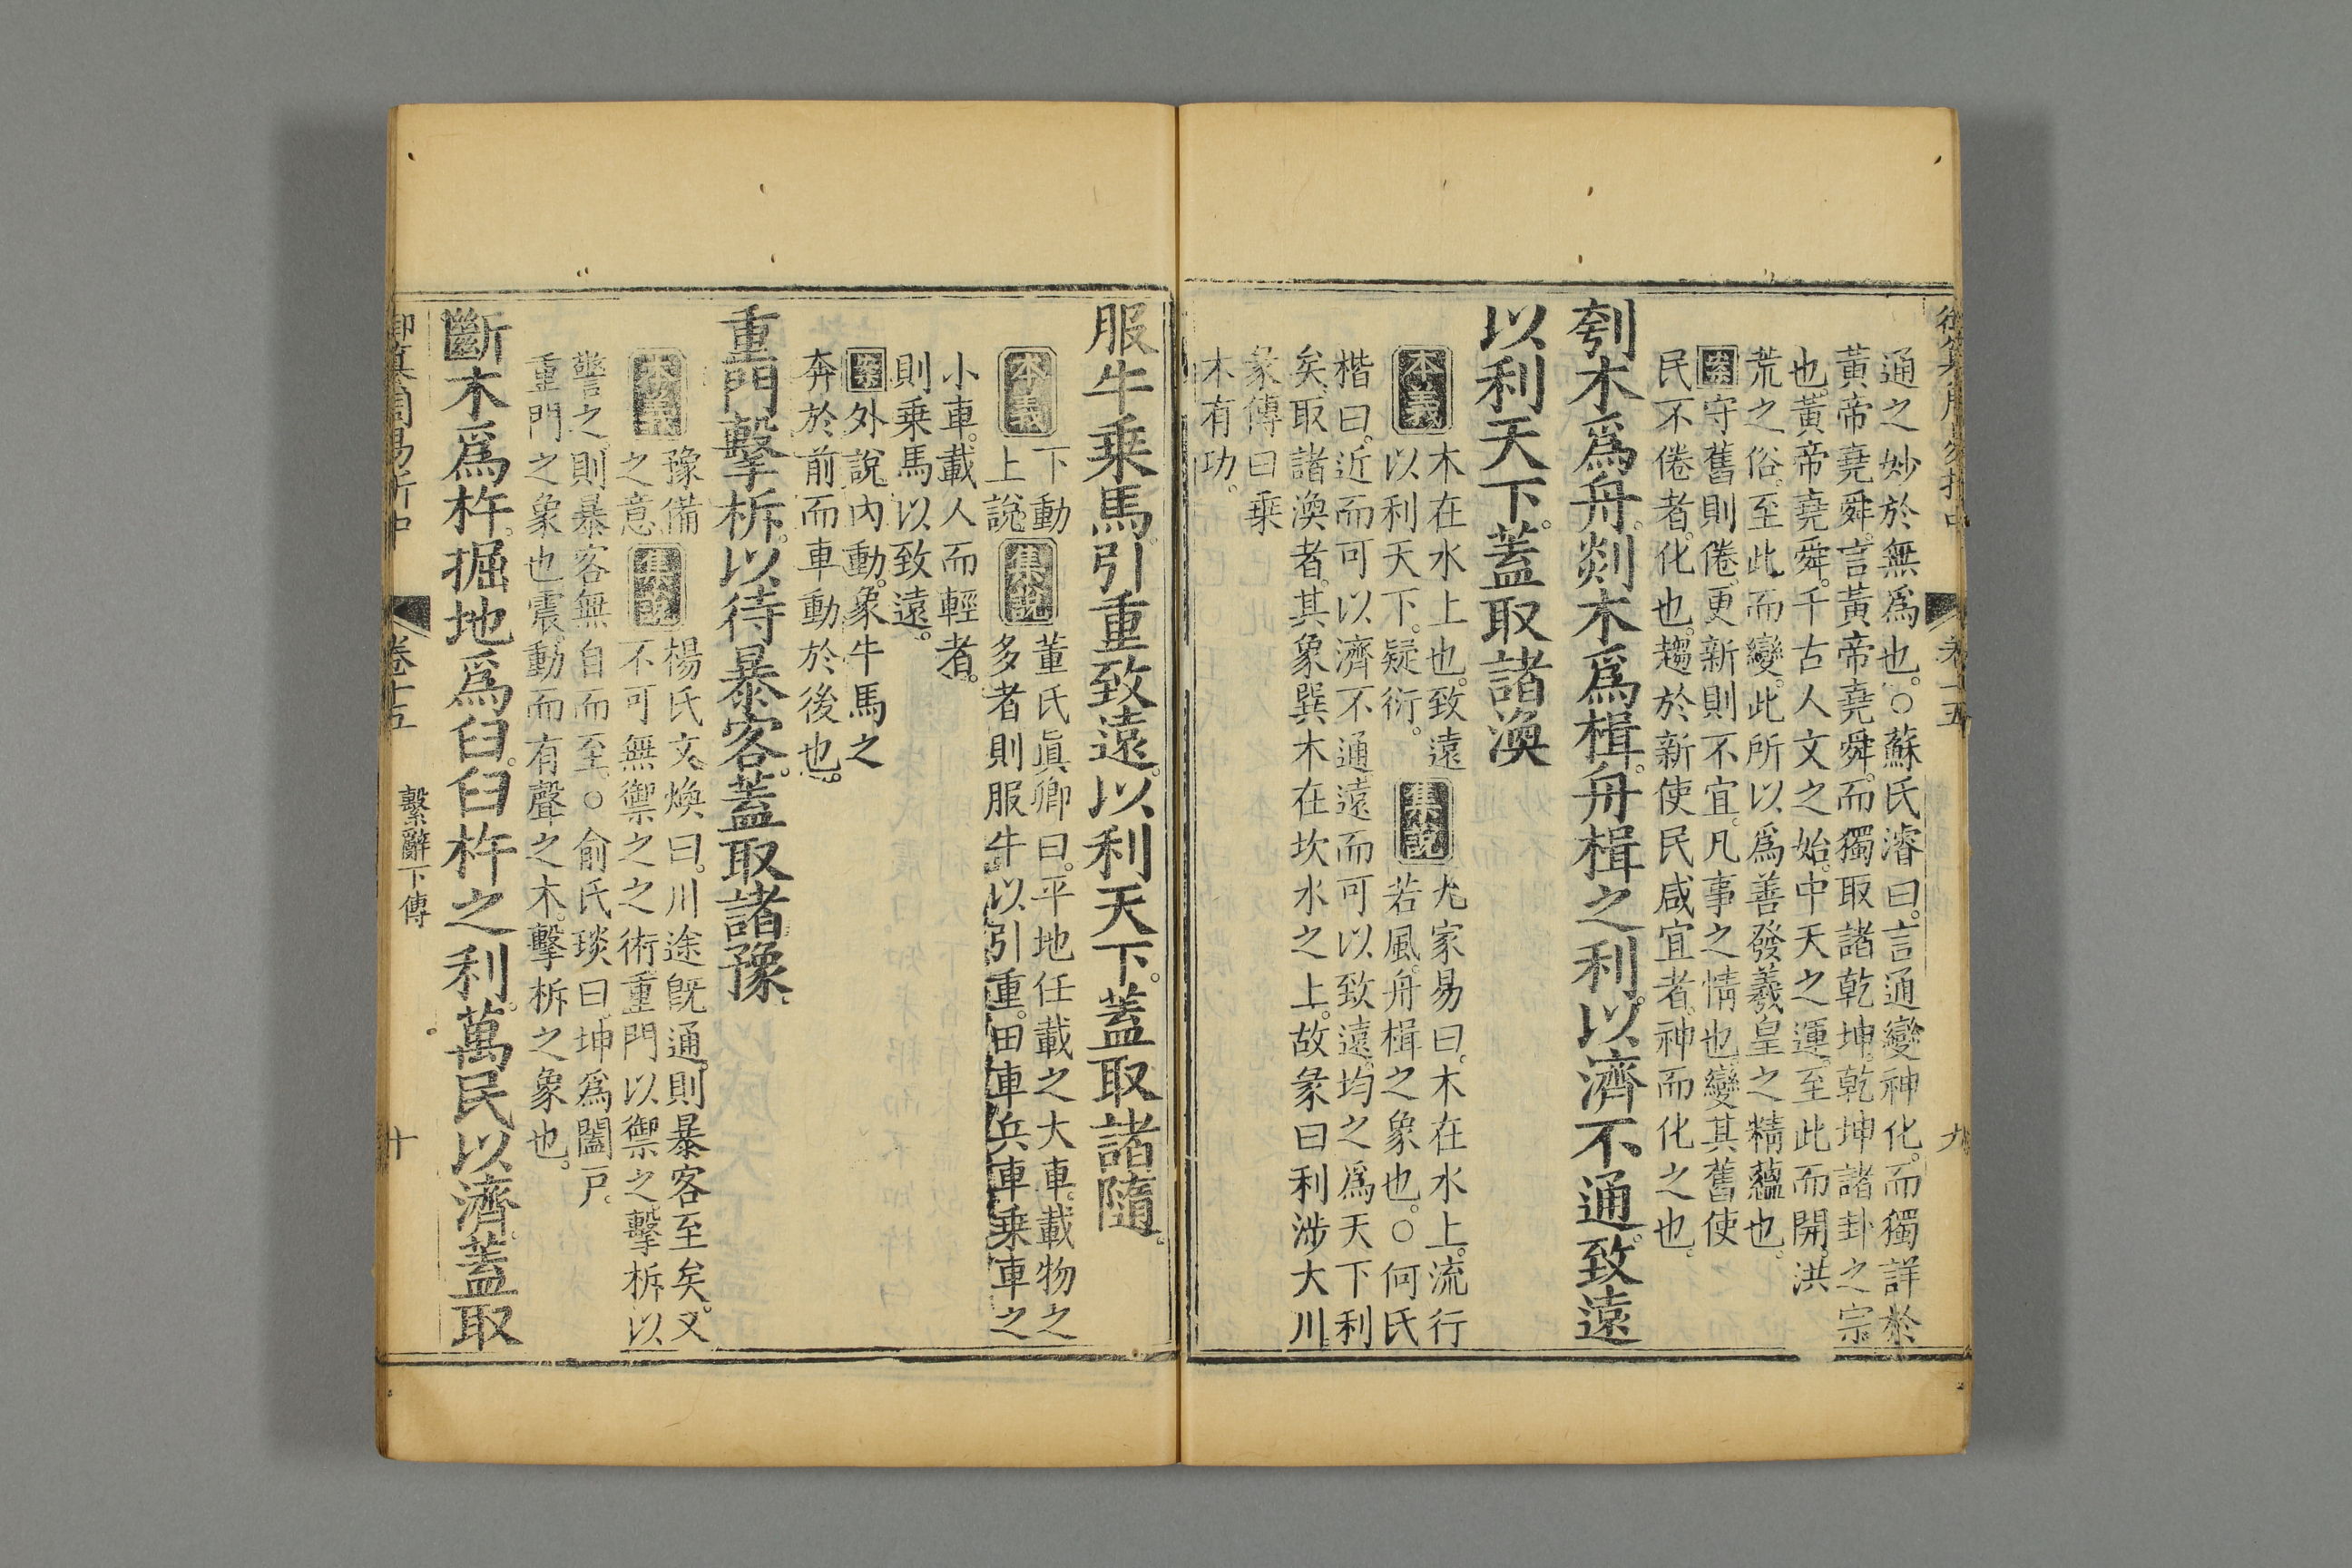 通之妙於無爲也。○蘇氏濬曰。言通變神化。而獨詳於
黃帝堯舜。言黃帝堯舜。而獨取諸乾坤。乾坤諸卦之宗
也。黃帝堯舜。千古人文之始。中天之運。至此而開。洪
荒之俗。至此而變。此所以爲善發羲皇之精蘊也。
案守舊則倦。更新則不宜。凡事之情也。變其舊使
民不倦者。化也。趨於新使民咸宜者。神而化之也。
刳木爲舟。剡木爲楫。舟楫之利。以濟不通。致遠
以利天下。蓋取諸渙
本義
木在水上也。致遠
以利天下。疑衍。
集說
九家易曰。木在水上。流行
若風。舟楫之象也。○何氏
楷曰。近而可以濟不通。遠而可以致遠。均之爲天下利
矣。取諸渙者。其象巽木在坎水之上。故彖曰利涉大川。
彖傳曰乗
木有功。
九
服牛乗馬。引重致遠。以利天下。蓋取諸隨。
本義
下動
上說
集說
董氏眞卿曰。平地任載之大車。載物之
多者則服牛以引重。田車兵車乗車之
小車。載人而輕者。
則乗馬以致遠。
案外說內動。象牛馬之
奔於前而車動於後也。
重門擊柝。以待暴客。蓋取諸豫。
本義
豫備
之意
集說
楊氏文煥曰。川途旣通。則暴客至矣。又
不可無禦之之術。重門以禦之。擊柝以
警之。則暴客無自而至。○俞氏琰曰。坤爲闔戸。
重門之象也。震動而有聲之木。擊柝之象也。
斷木爲杵。掘地爲臼。臼杵之利。萬民以濟。蓋取
御纂周易折中
卷十五
繫辭下傳
十